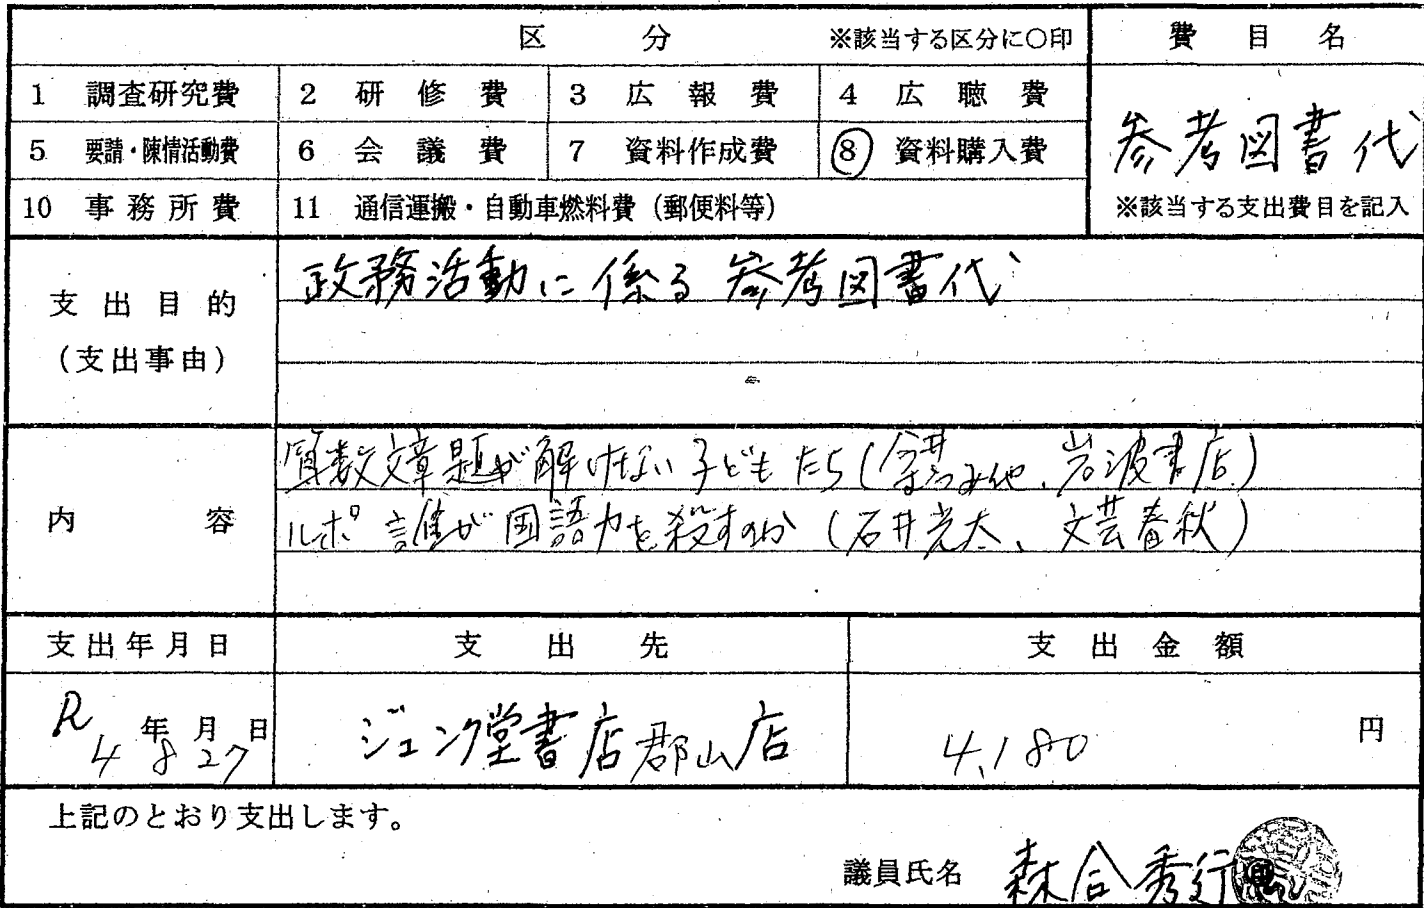 区分 ※該当する区分に〇印 費目名
1 調査研究費 2 研修費 3 広報費 4 広聴費
参考図書代
5 要請・陳情活動費 6 会議費 7 資料作成費 8 資料購入費
10 事務所費 11 通信運搬・自動車燃料費(郵便料等) ※該当する支出費目を記入
政務活動に係る参考図書代
支出目的
(支出事由)
算数文章題が解けない子どもたち(今井むつみ他、岩波書店)
内容 ルポ 誰が国語力を殺すのか(石井光太、文芸春秋)
支出年月日 支出先 支出金額
R4年8月27日 ジュンク堂書店郡山店 4,180円
上記のとおり支出します。
議員氏名 森合秀行